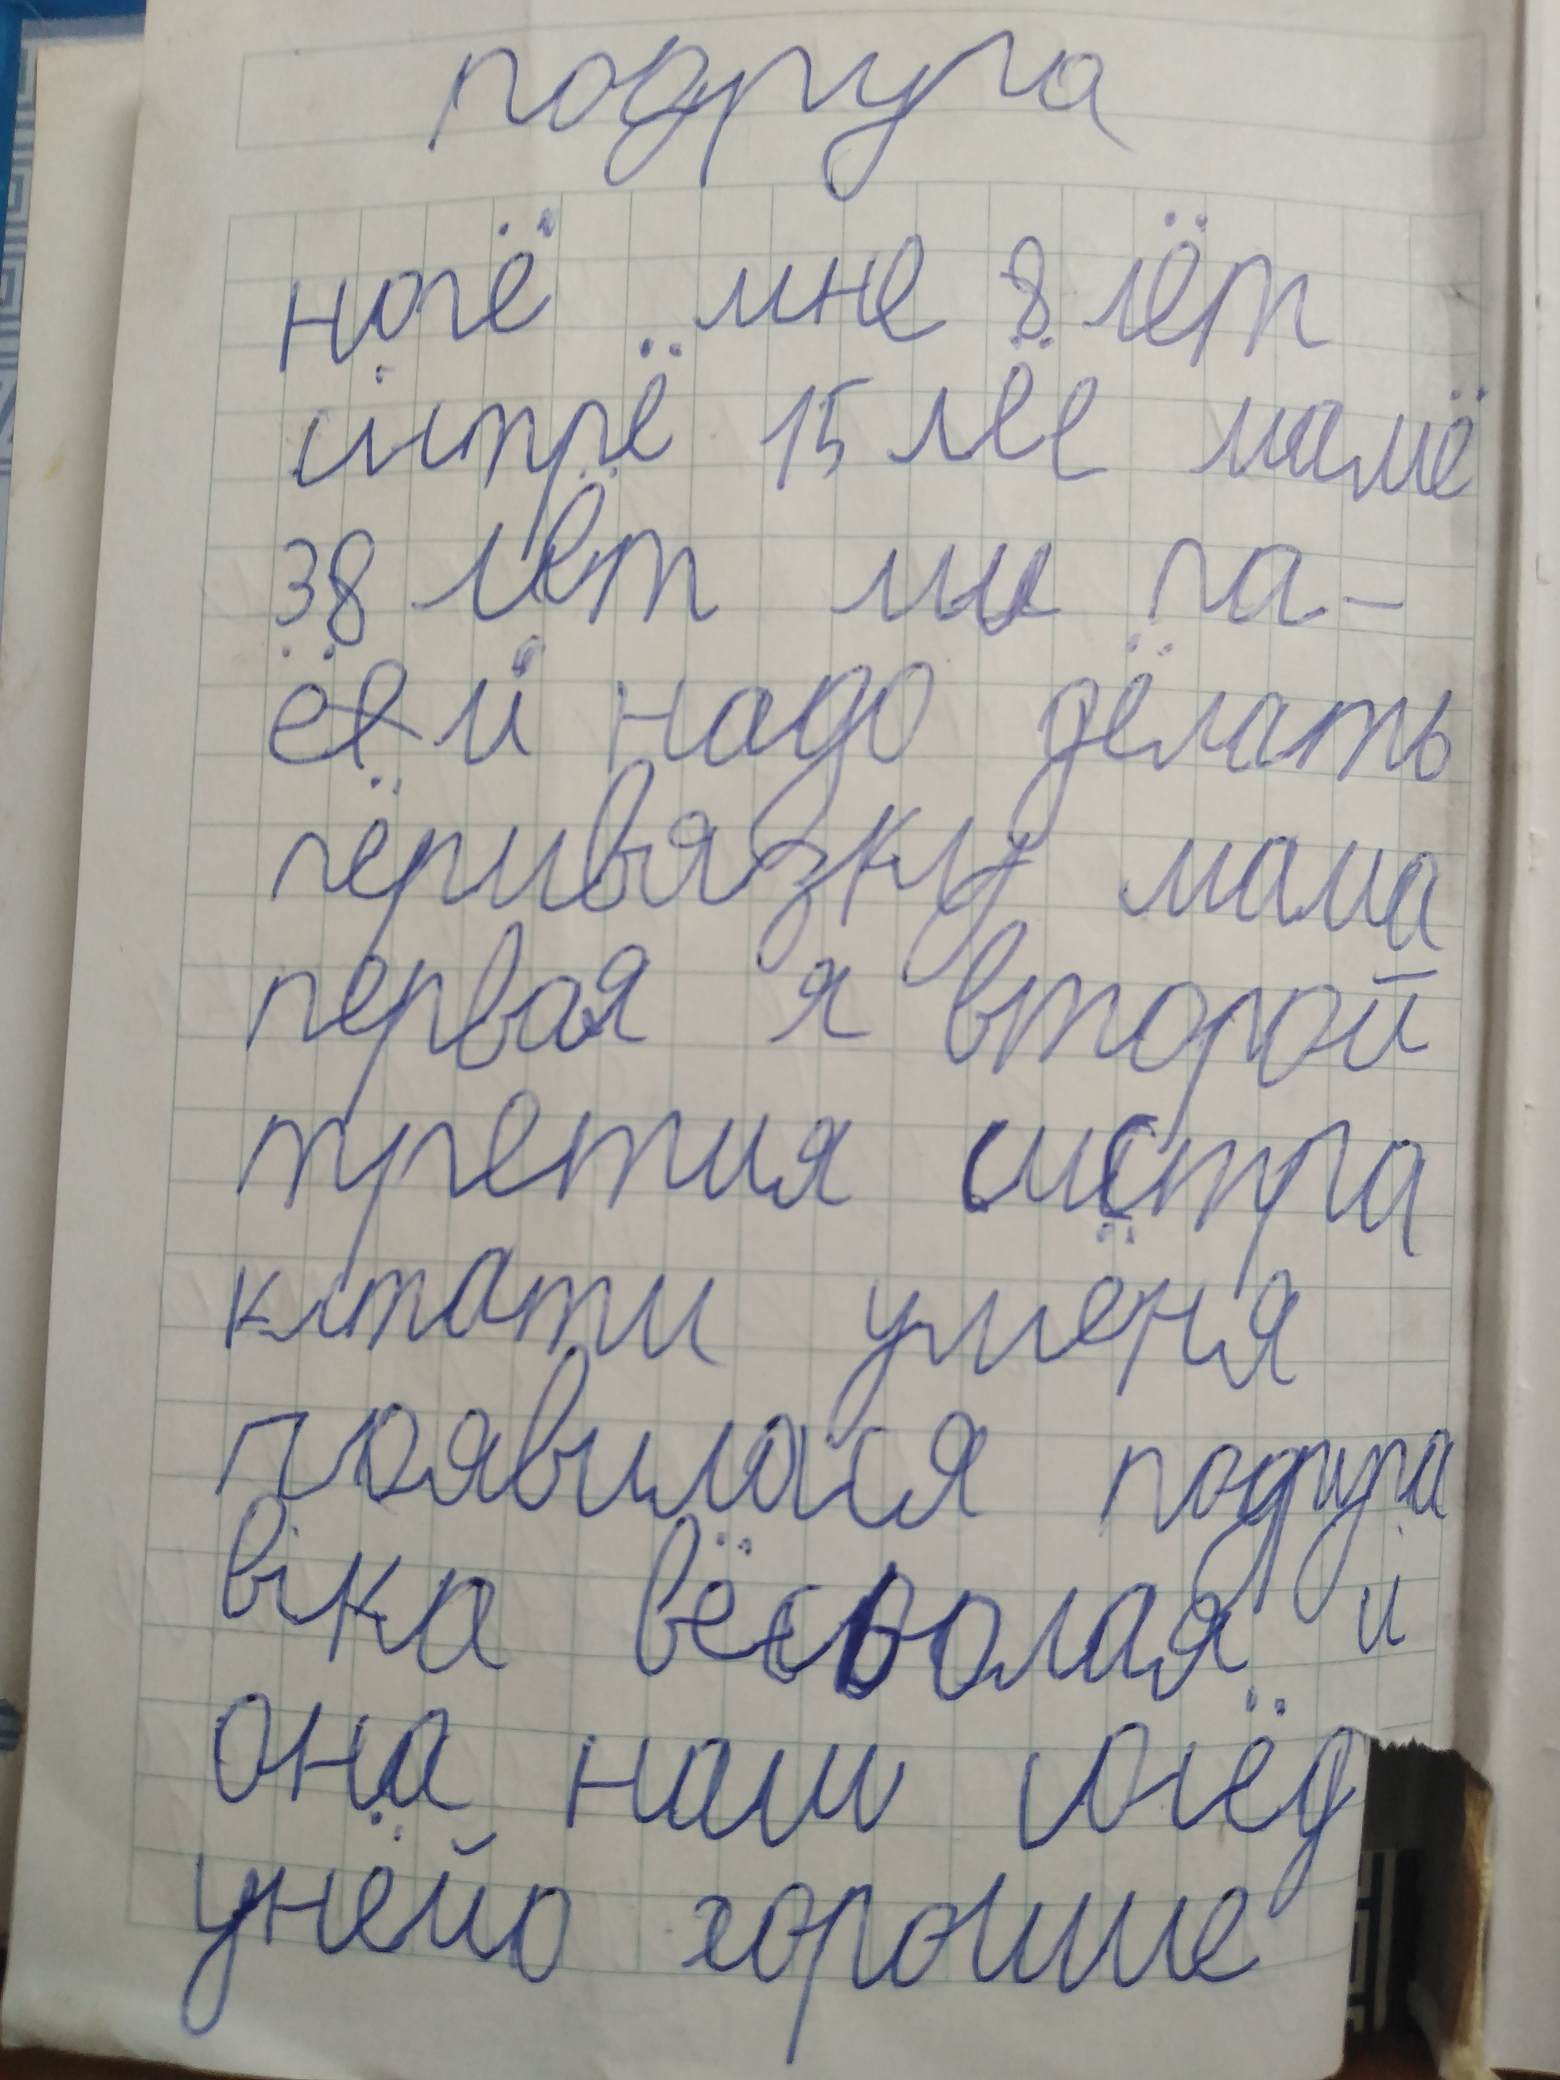 подруга
ногё мне 8 лёт
систрё 15 лёт мамё
38 лёт ми па-
ёй надо дёлать
пёривязку мама
первая я второй
третия систра
кстати умёня
появилася подруга
віка вёсьолая и
она наш сосёд
унёйо хороше